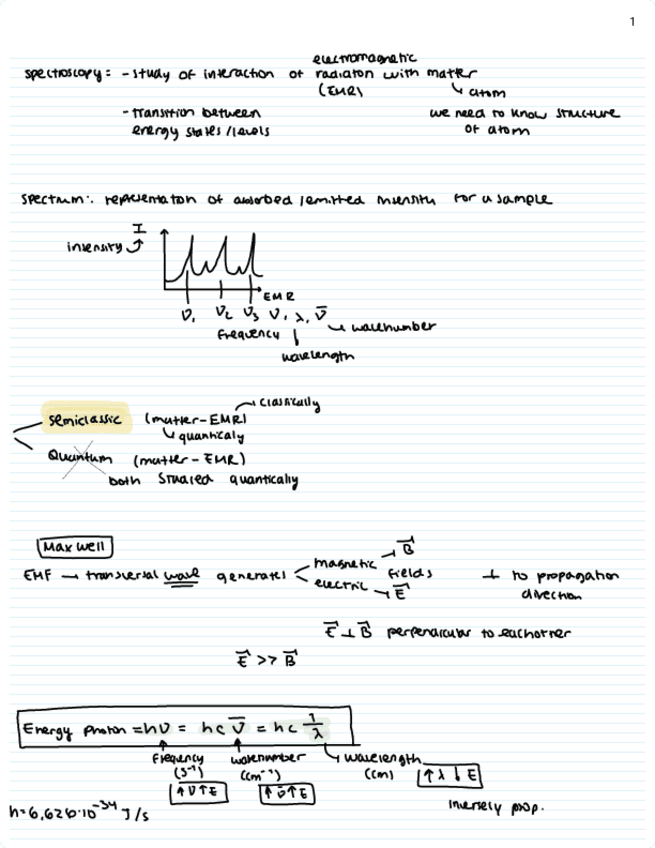 1
spectroscopy: - study of interaction of electromagnetic radiaton with matter
(EMR) ↳ atom
- transition between energy states/levels
we need to know structure of atom
spectrum: representation of absorbed/emitted intensity for a sample
I
intensity
EMR
ν₁ ν₂ ν₃ ν, λ, ν̅
frequency
wavenumber
wavelength
semiclassic (matter-EMR)
classically
quantically
Quantum (matter - EMR)
both studied quantically
Maxwell
EMF → transversal wave generates < magnetic → B⃗
electric → E⃗
fields
⊥ to propagation direction
E⃗ ⊥ B⃗ perpendicular to eachother
E⃗ >> B⃗
Energy photon = hν = hc ν̅ = hc 1/λ
frequency (s⁻¹)
wavenumber (cm⁻¹)
wavelength (cm)
↑ν↑E
↑ν̅↑E
↑λ↓E
inversely prop.
h=6,626·10⁻³⁴ J/s